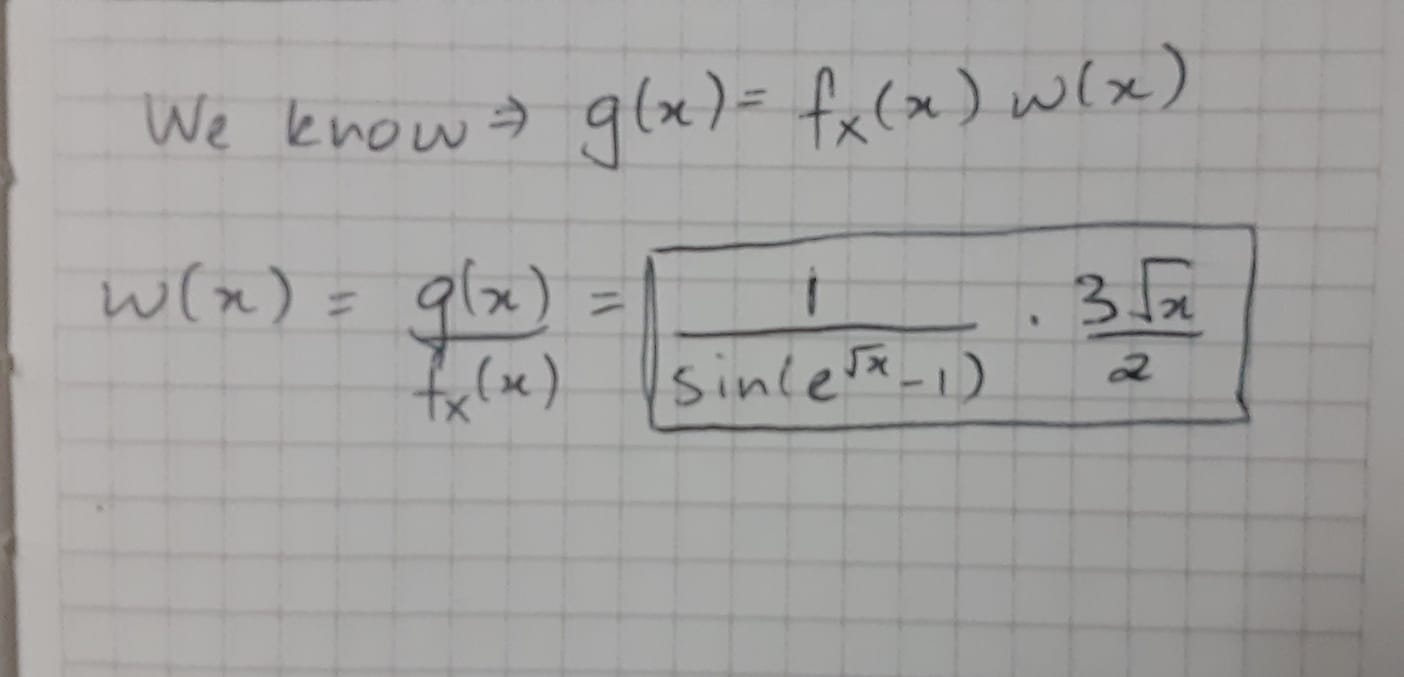 We know ⇒ g(x) = fₓ(x) w(x)
w(x) = g(x)/fₓ(x) = 1/sin(e^√x - 1) · 3√x/2